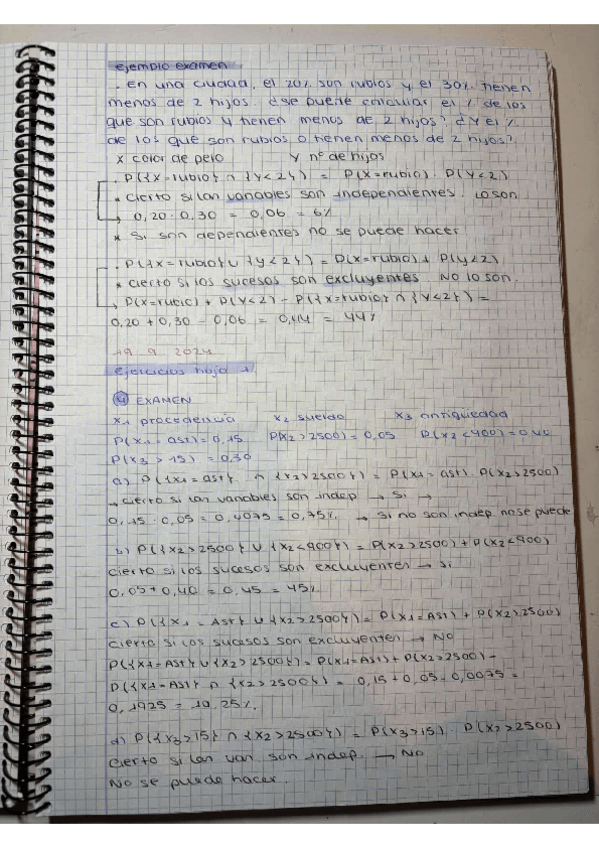 ejemplo examen
. en una ciudad, el 20% son rubios y el 30% tienen
menos de 2 hijos. ¿se puede calcular el % de los
que son rubios y tienen menos de 2 hijos? ¿Y el %
de los que son rubios o tienen menos de 2 hijos?
X color de pelo Y nº de hijos
. P({X=rubio} ∩ {Y<2}) = P(X=rubio) . P(Y<2)
* cierto si las variables son independientes. LO SON
→ 0,20 · 0,30 = 0,06 = 6%
* Si son dependientes no se puede hacer
. P({X=rubio} ∪ {Y<2}) = P(X=rubio) + P(Y<2)
* cierto si los sucesos son excluyentes NO lo son.
→ P(X=rubio) + P(Y<2) - P({X=rubio} ∩ {Y<2}) =
0,20 + 0,30 - 0,06 = 0,44 = 44%
19. 9. 2024
ejercicios hoja 1
EXAMEN
X1 procedencia X2 sueldo X3 antigüedad
P(X1=ast)=0,15 P(X2>2500)=0,05 P(X2<900)=0,40
P(X3>15)=0,30
a) P({X1=ast} ∩ {X2>2500}) = P(X1=ast). P(X2>2500)
→ cierto si las variables son indep → Si →
0,15 · 0,05 = 0,0075 = 0,75% → Si no son indep. no se puede
b) P({X2>2500} ∪ {X2<900}) = P(X2>2500) + P(X2<900)
cierto si los sucesos son excluyentes → Si
0,05 + 0,40 = 0,45 = 45%
c) P({X1=Ast} ∪ {X2>2500}) = P(X1=Ast) + P(X2>2500)
cierto si los sucesos son excluyentes → NO
P({X1=Ast} ∪ {X2>2500}) = P(X1=Ast) + P(X2>2500) -
P({X1=Ast} ∩ {X2>2500}) = 0,15 + 0,05 - 0,0075 =
0,1925 = 19,25%.
d) P({X3>15} ∩ {X2>2500}) = P(X3>15) . P(X2>2500)
cierto si las var son indep. → No
No se puede hacer.